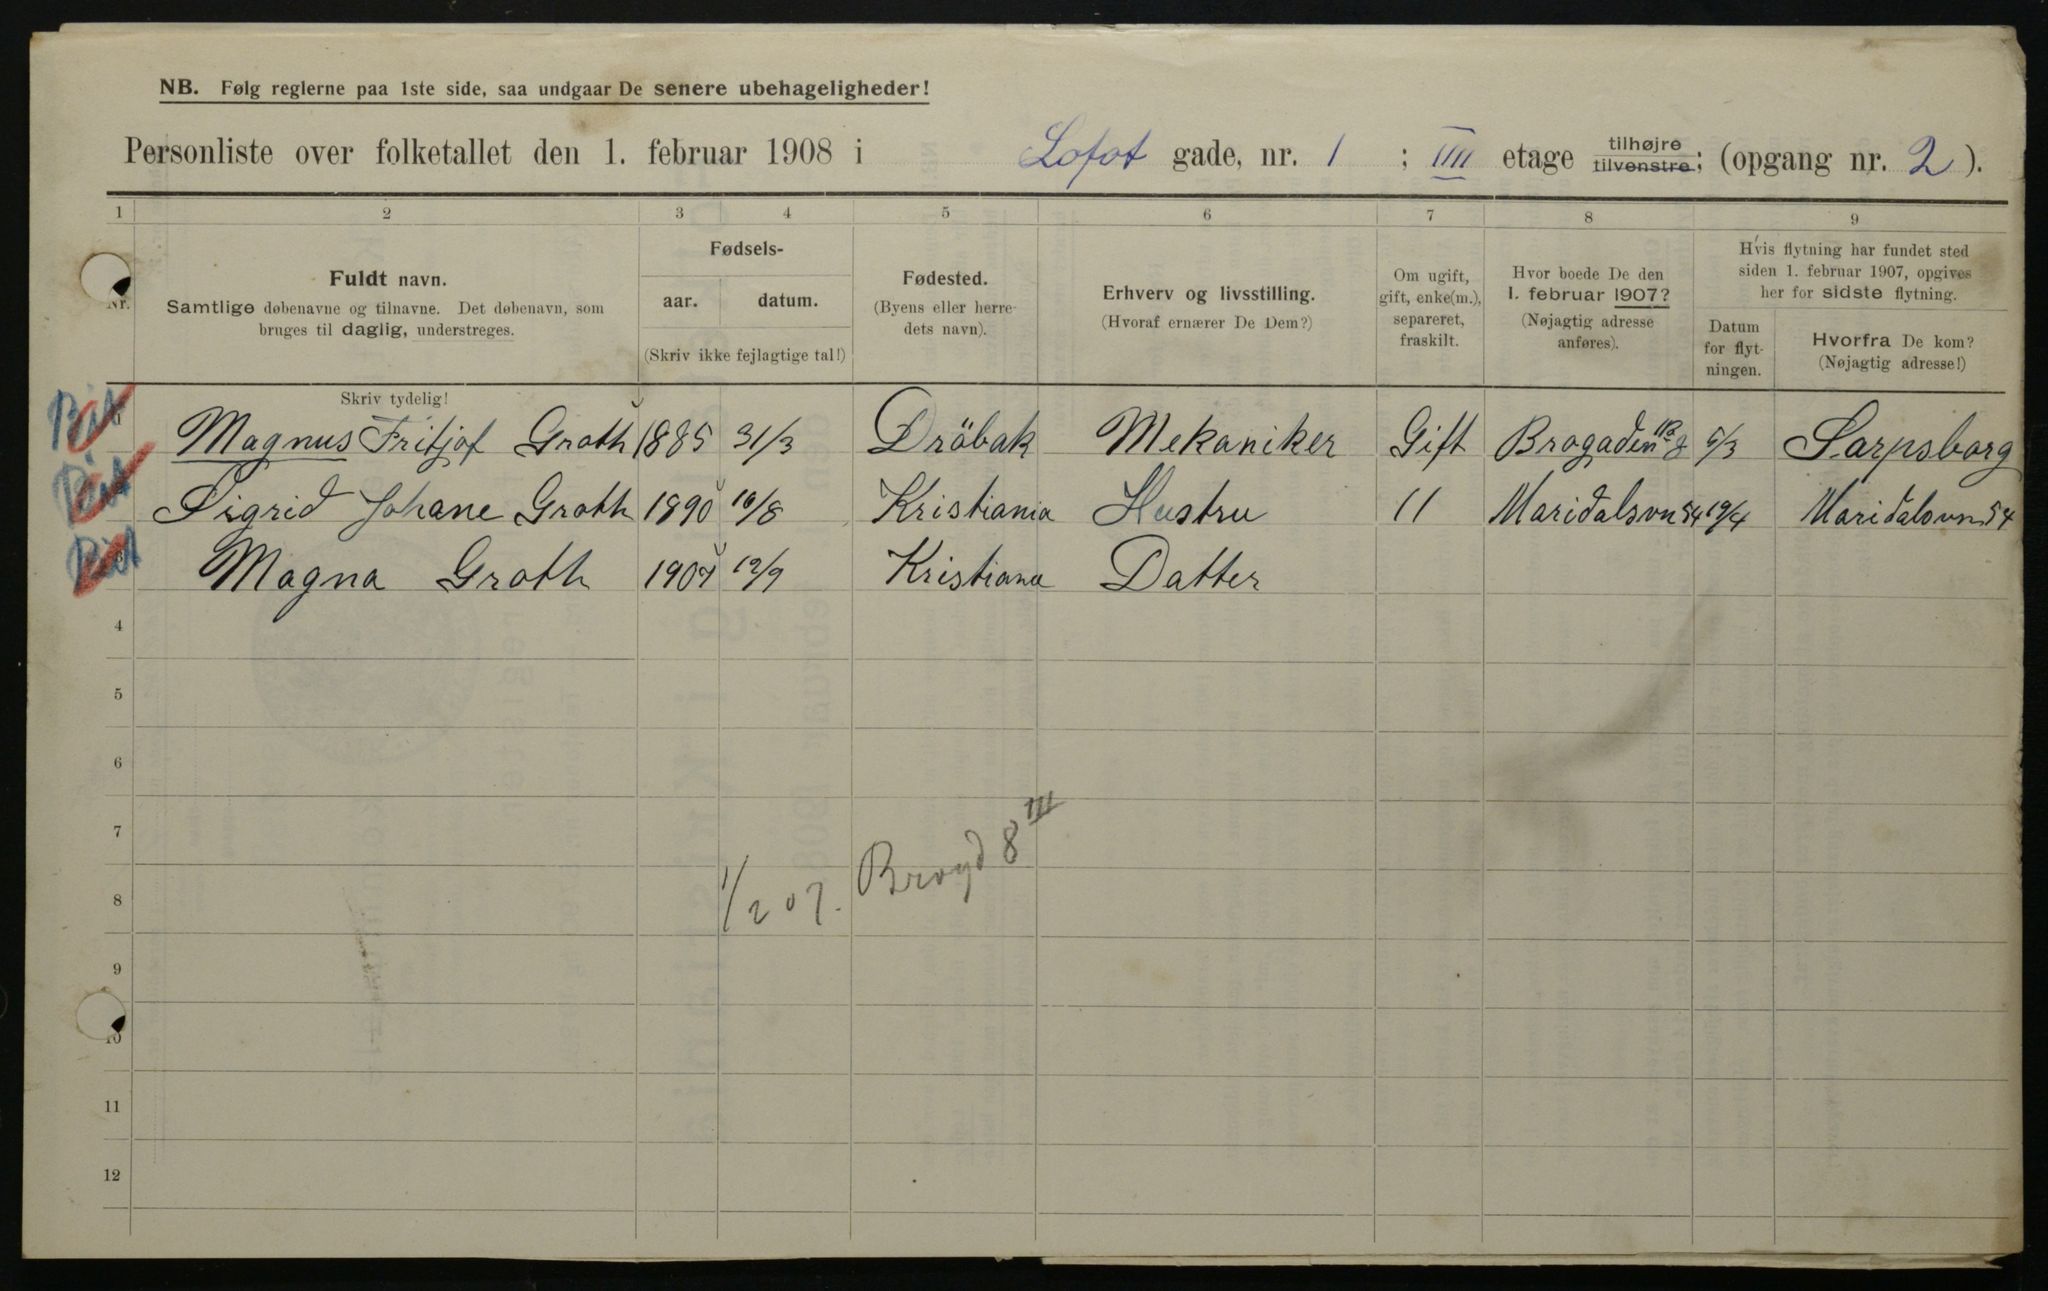 NB. Følg reglerne paa 1ste side, saa undgaar De senere ubehageligheder!
Personliste over folketallet den 1. februar 1908 i Lofot gade, nr. 1 ; IIII etage tilhøjre tilvenstre; (opgang nr. 2 ).
1 2 3 4 5 6 7 8 9
Nr.
Fuldt navn.
Samtlige døbenavne og tilnavne. Det døbenavn, som
bruges til daglig, understreges.
Fødsels-
aar. datum.
(Skriv ikke fejlagtige tal!)
Fødested.
(Byens eller herre-
dets navn).
Erhverv og livsstilling.
(Hvoraf ernærer De Dem?)
Om ugift,
gift, enke(m.),
separeret,
fraskilt.
Hvor boede De den
1. februar 1907?
(Nøjagtig adresse
anføres).
Hvis flytning har fundet sted
siden 1. februar 1907, opgives
her for sidste flytning.
Datum
for flyt-
ningen.
Hvorfra De kom?
(Nøjagtig adresse!)
Skriv tydelig!
Magnus Fritjof Groth 1885 31/3 Dröbak Mekaniker Gift Brogaden 5/3 Sarpsborg
Sigrid Johane Groth 1890 16/8 Kristiania Hustru 11 Maridalsvn 54 19/4 Maridalsvn 54
Magna Groth 1907 12/9 Kristiana Datter
4
5
6
7
8
1/2 07. Brogd 8 III
9
10
11
12